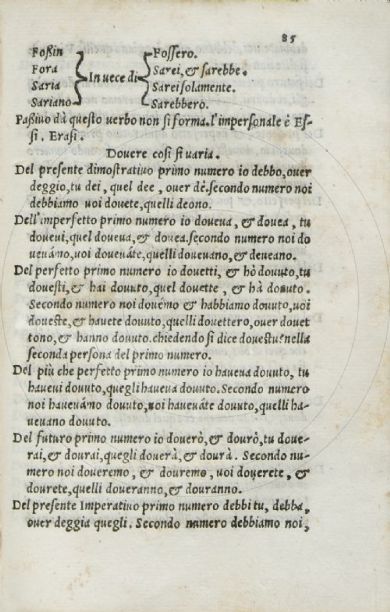 85
Foßin } { Fossero.
Fora } In vece di { Sarei, & sarebbe.
Saria } { Sarei solamente.
Sariano } { Sarebbero.
Paßivo dà questo verbo non si forma. l'impersonale è Es-
si, Erasi.
Douere così si uaria.
Del presente dimostratiuo primo numero io debbo, ouer
deggio, tu dei, quel dee, ouer dè. secondo numero noi
debbiamo uoi douete, quelli deono.
Dell'imperfetto primo numero io doueua, & douea, tu
doueui, quel doueua, & douea. secondo numero noi do
ueuámo, uoi doueuáte, quelli doueuano, & deueano.
Del perfetto primo numero io douetti, & hò douuto, tu
douesti, & hai douuto, quel douette, & hà douuto.
Secondo numero noi douémo & habbiamo douuto, uoi
doueste, & hauete douuto, quelli douettero, ouer douet
tono, & hanno douuto. chiedendo si dice douestu? nella
seconda persona del primo numero.
Del più che perfetto primo numero io haueua douuto, tu
haueui douuto, quegli haueua douuto. Secondo numero
noi haueuámo douuto, uoi haueuáte douuto, quelli ha-
ueuano douuto.
Del futuro primo numero io douerò, & dourò, tu doue-
rai, & dourai, quegli douerà, & dourà. Secondo nu-
mero noi doueremo, & douremo, uoi douerete, &
dourete, quelli doueranno, & douranno.
Del presente Imperatiuo primo numero debbi tu, debba,
ouer deggia quegli. Secondo numero debbiamo noi,